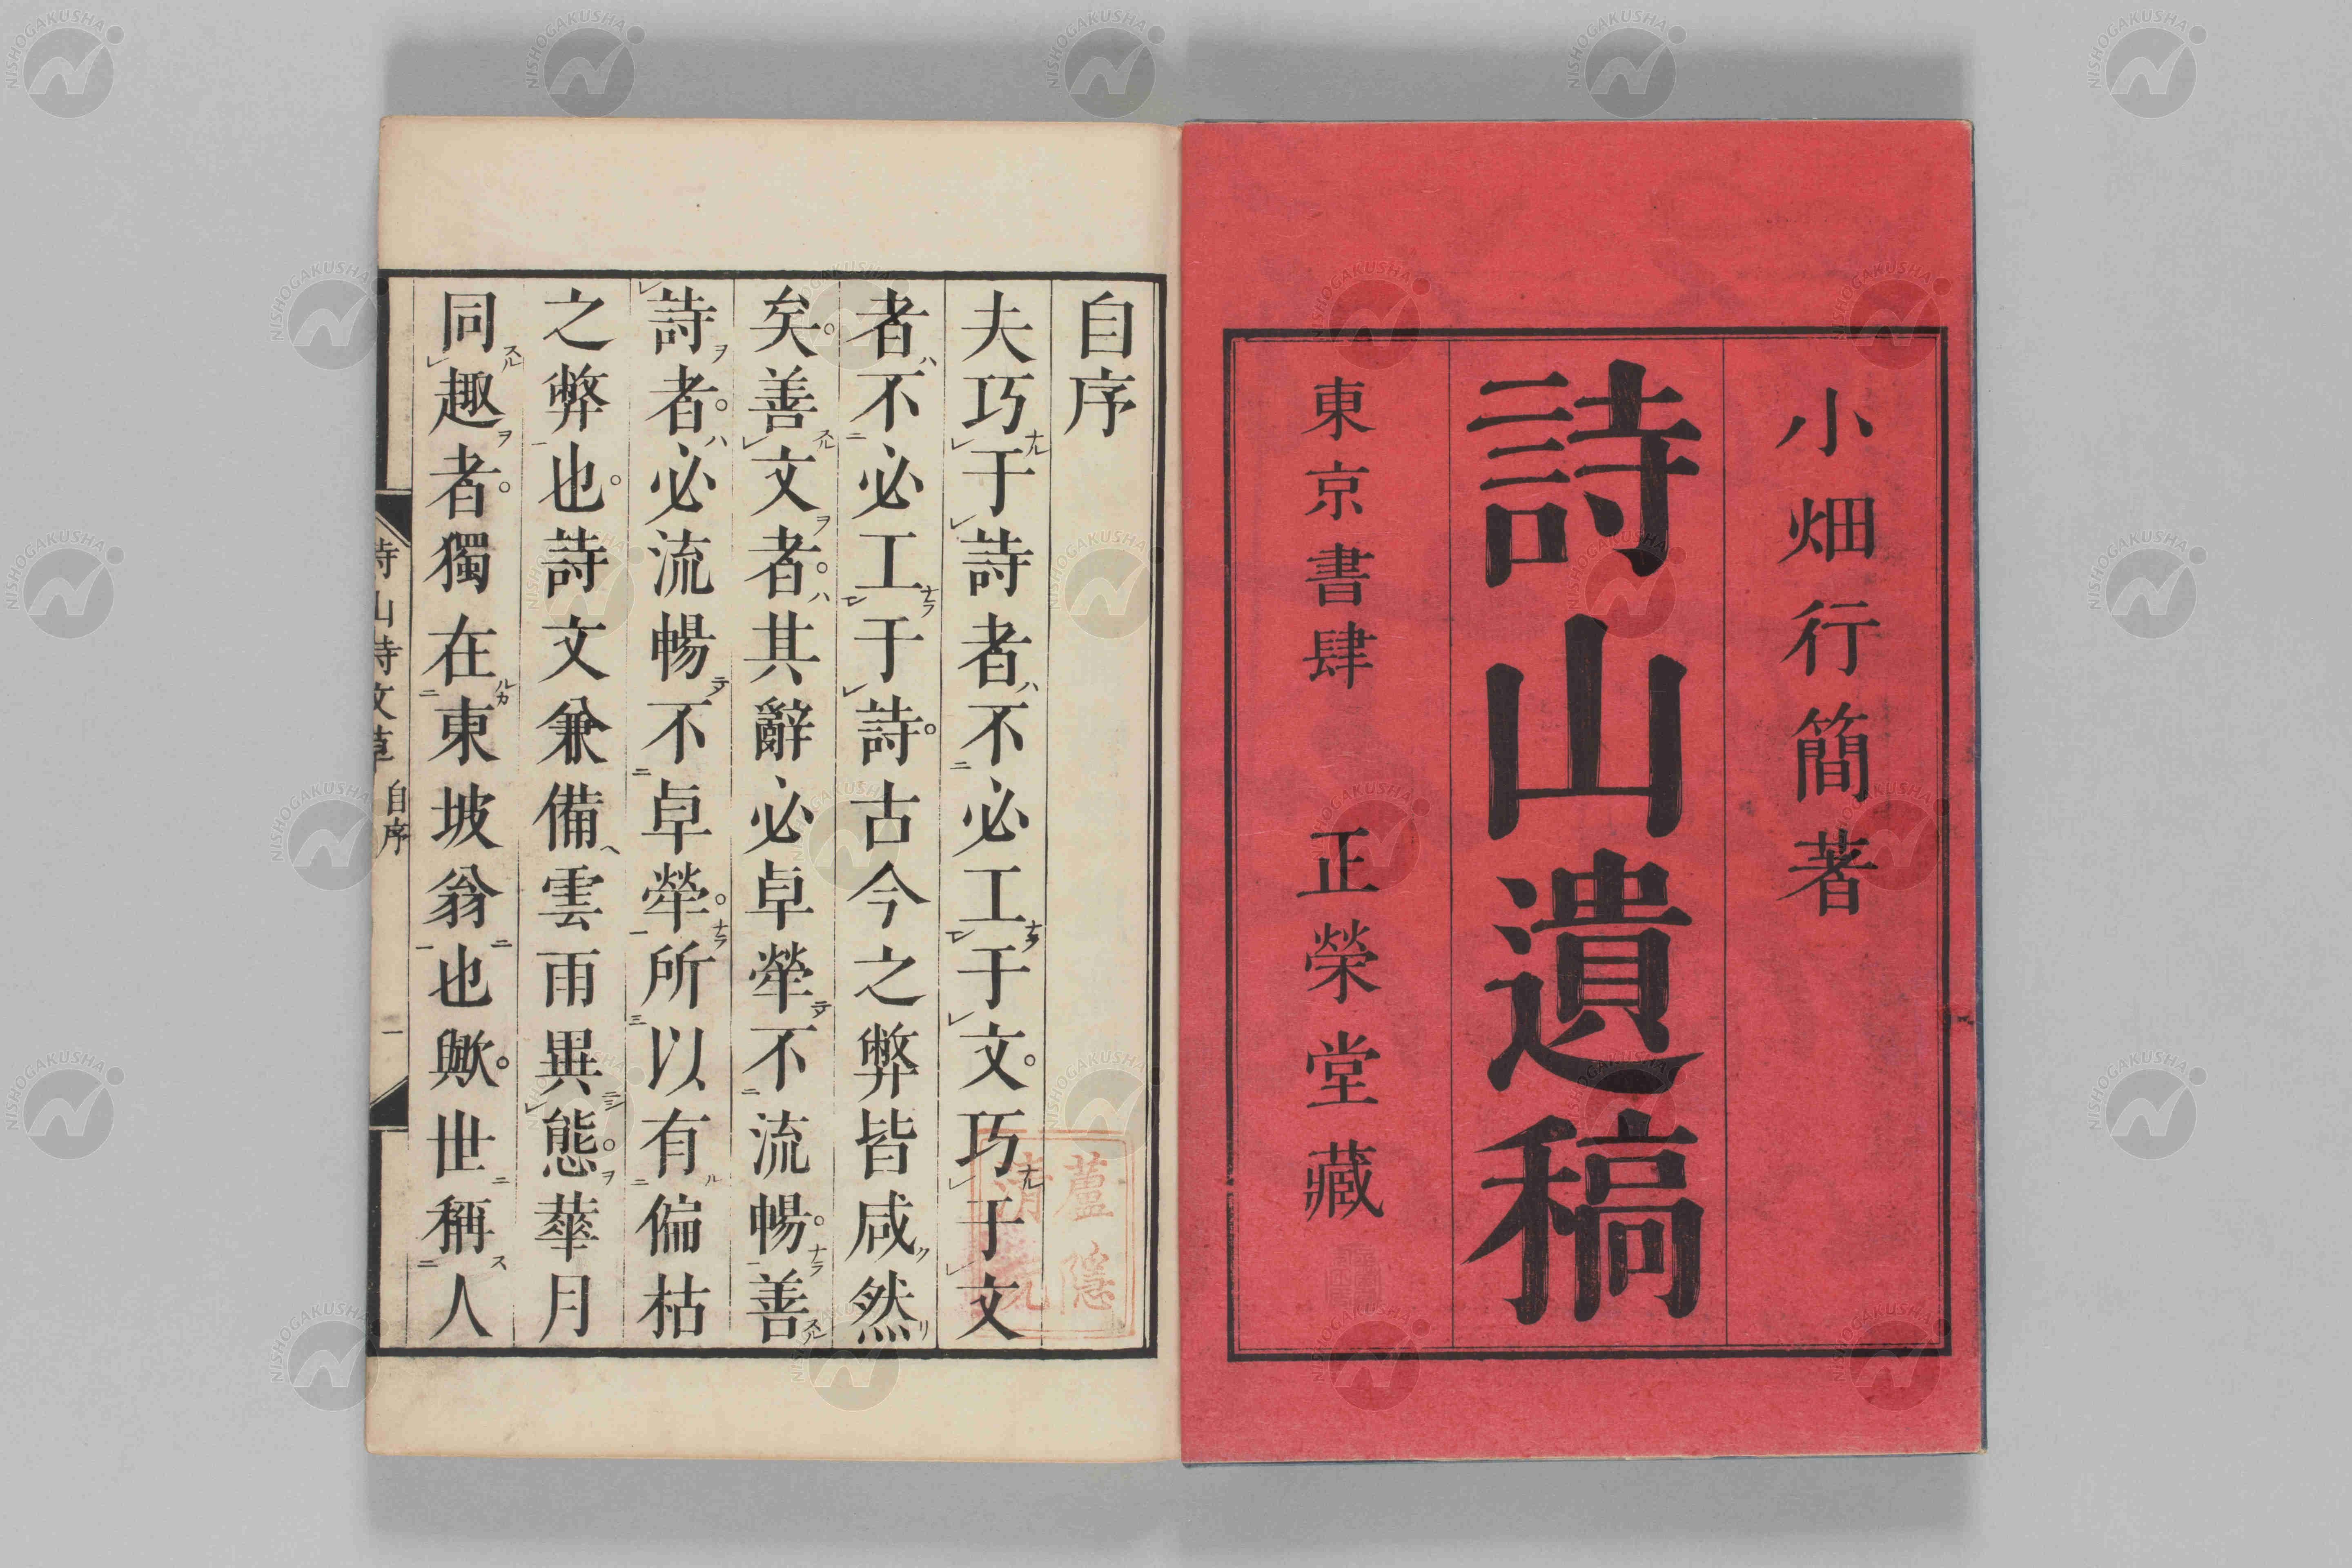 小畑行簡著
詩山遺稿
東京書肆 正榮堂藏
自序
夫巧于詩者不必工于文。巧于文
者不必工于詩。古今之弊皆咸然
矣。善文者。其辭必卓犖不流暢。善
詩者。必流暢不卓犖。所以有偏枯
之弊也。詩文兼備雲雨異態。華月
同趣者。獨在東坡翁也歟。世稱人
詩山詩文草 自序 一
蘆隱
NISHOGAKUSHA